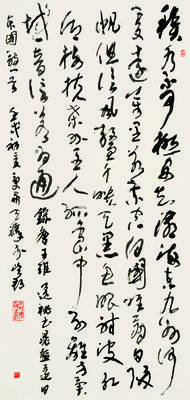 積水不可極安知滄海東九州何
處遠萬里若乘空向國唯看日歸
帆但信風鰲身映天黑魚眼射波紅
鄉樹扶桑外主人孤島中別離方異
域音信若為通 錄唐王維送秘書晁監還日
本國詩一首 壬戌初夏